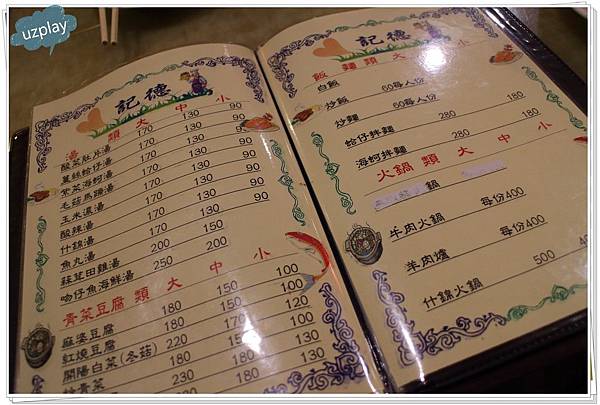 uzplay
記德
湯類 大 中 小
酸菜肚片湯 170 130 90
薑絲蛤仔湯 170 130 90
紫菜海蚵湯 170 130 90
毛菇馬蹄湯 170 130 90
玉米濃湯 170 130 90
酸辣湯 170 130 90
什錦湯 170 130 90
魚丸湯 200 150
蒜茸田雞湯 250 200
吻仔魚海鮮湯
青菜豆腐類 大 中 小
麻婆豆腐 180 150 100
紅燒豆腐 220 150 100
開陽白菜(冬菇) 180 170 120
炒青菜 230 180 130
記德
飯麵類 大 小
白飯
炒飯 60每人份
炒麵 60每人份
蛤仔拌麵 280 180
海蚵拌麵 280 180
火鍋類 大 中 小
鍋
牛肉火鍋 每份400
羊肉爐 每份400
什錦火鍋 500